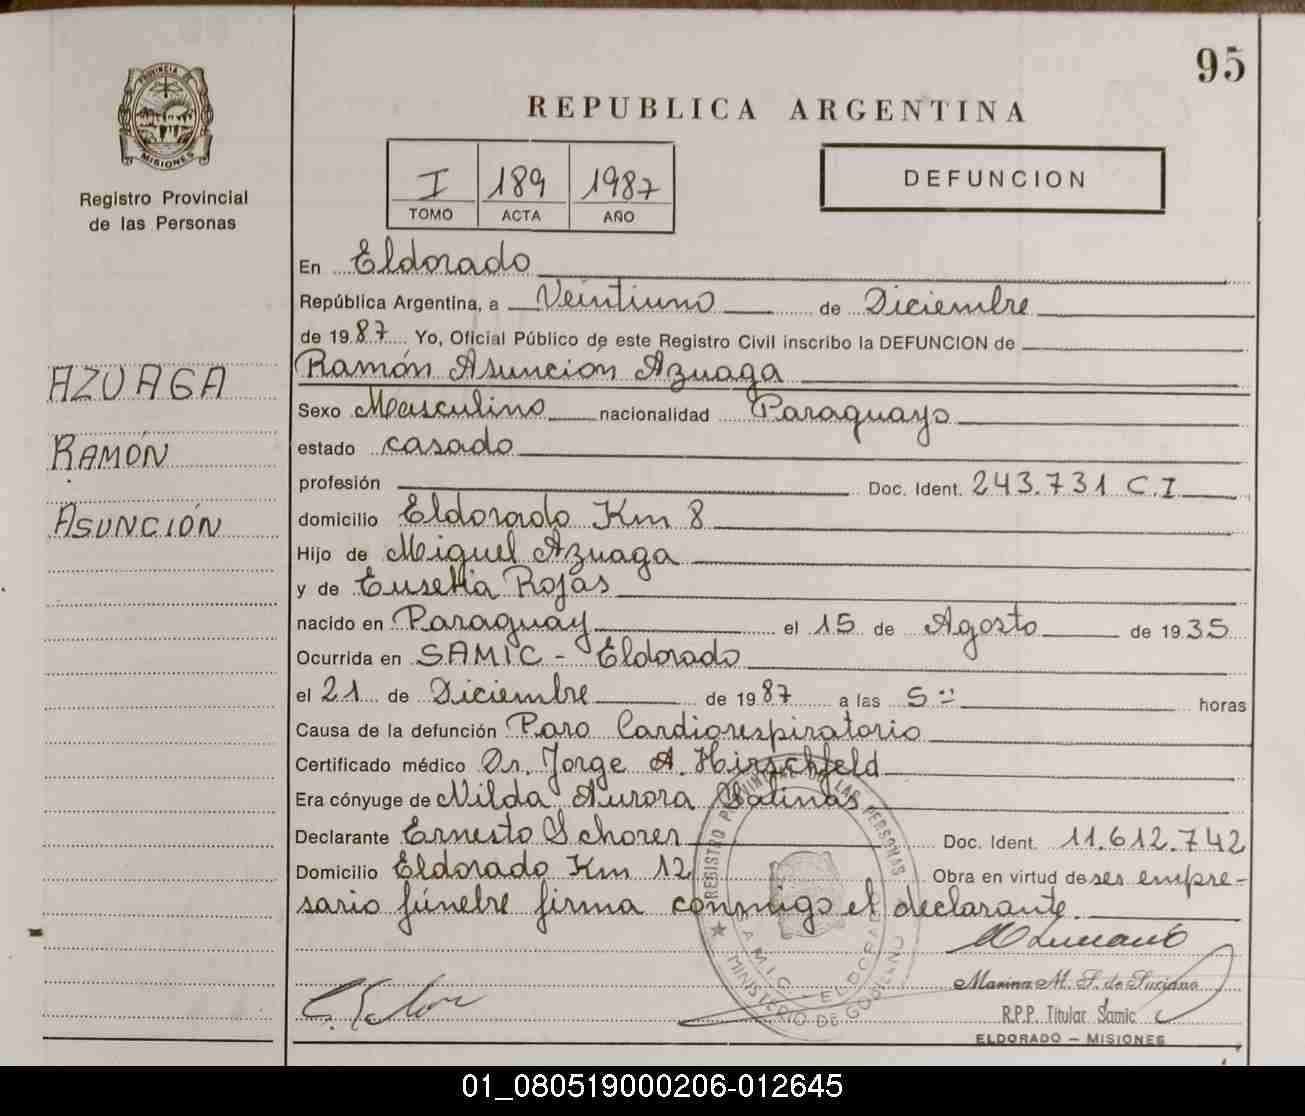 95
PROVINCIA DE
MISIONES
Registro Provincial
de las Personas
REPUBLICA ARGENTINA
I 189 1987
TOMO ACTA AÑO
DEFUNCION
AZUAGA
RAMÓN
ASUNCIÓN
En Eldorado
República Argentina, a Veintiuno de Diciembre
de 1987 Yo, Oficial Público de este Registro Civil inscribo la DEFUNCION de
Ramón Asunción Azuaga
Sexo Masculino nacionalidad Paraguayo
estado casado
profesión Doc. Ident. 243.731 C.I
domicilio Eldorado Km 8
Hijo de Miguel Azuaga
y de Rojas
nacido en Paraguay el 15 de Agosto de 1935
Ocurrida en SAMIC - Eldorado
el 21 de Diciembre de 1987 a las 5 horas
Causa de la defunción Paro Cardiorespiratorio
Certificado médico Dr. Jorge A. Hirschfeld
Era cónyuge de Nilda Aurora Salinas
Declarante Ernesto Schorer Doc. Ident. 11.612.742
Domicilio Eldorado Km 12 Obra en virtud de ser empre-
sario fúnebre firma conmigo el declarante.
REGISTRO PROVINCIAL DE LAS PERSONAS
S.A.M.I.C. - ELDORADO
MINISTERIO DE GOBIERNO
Marina M. S. de Luciano
R.P.P. Titular Samic
ELDORADO - MISIONES
01_080519000206-012645